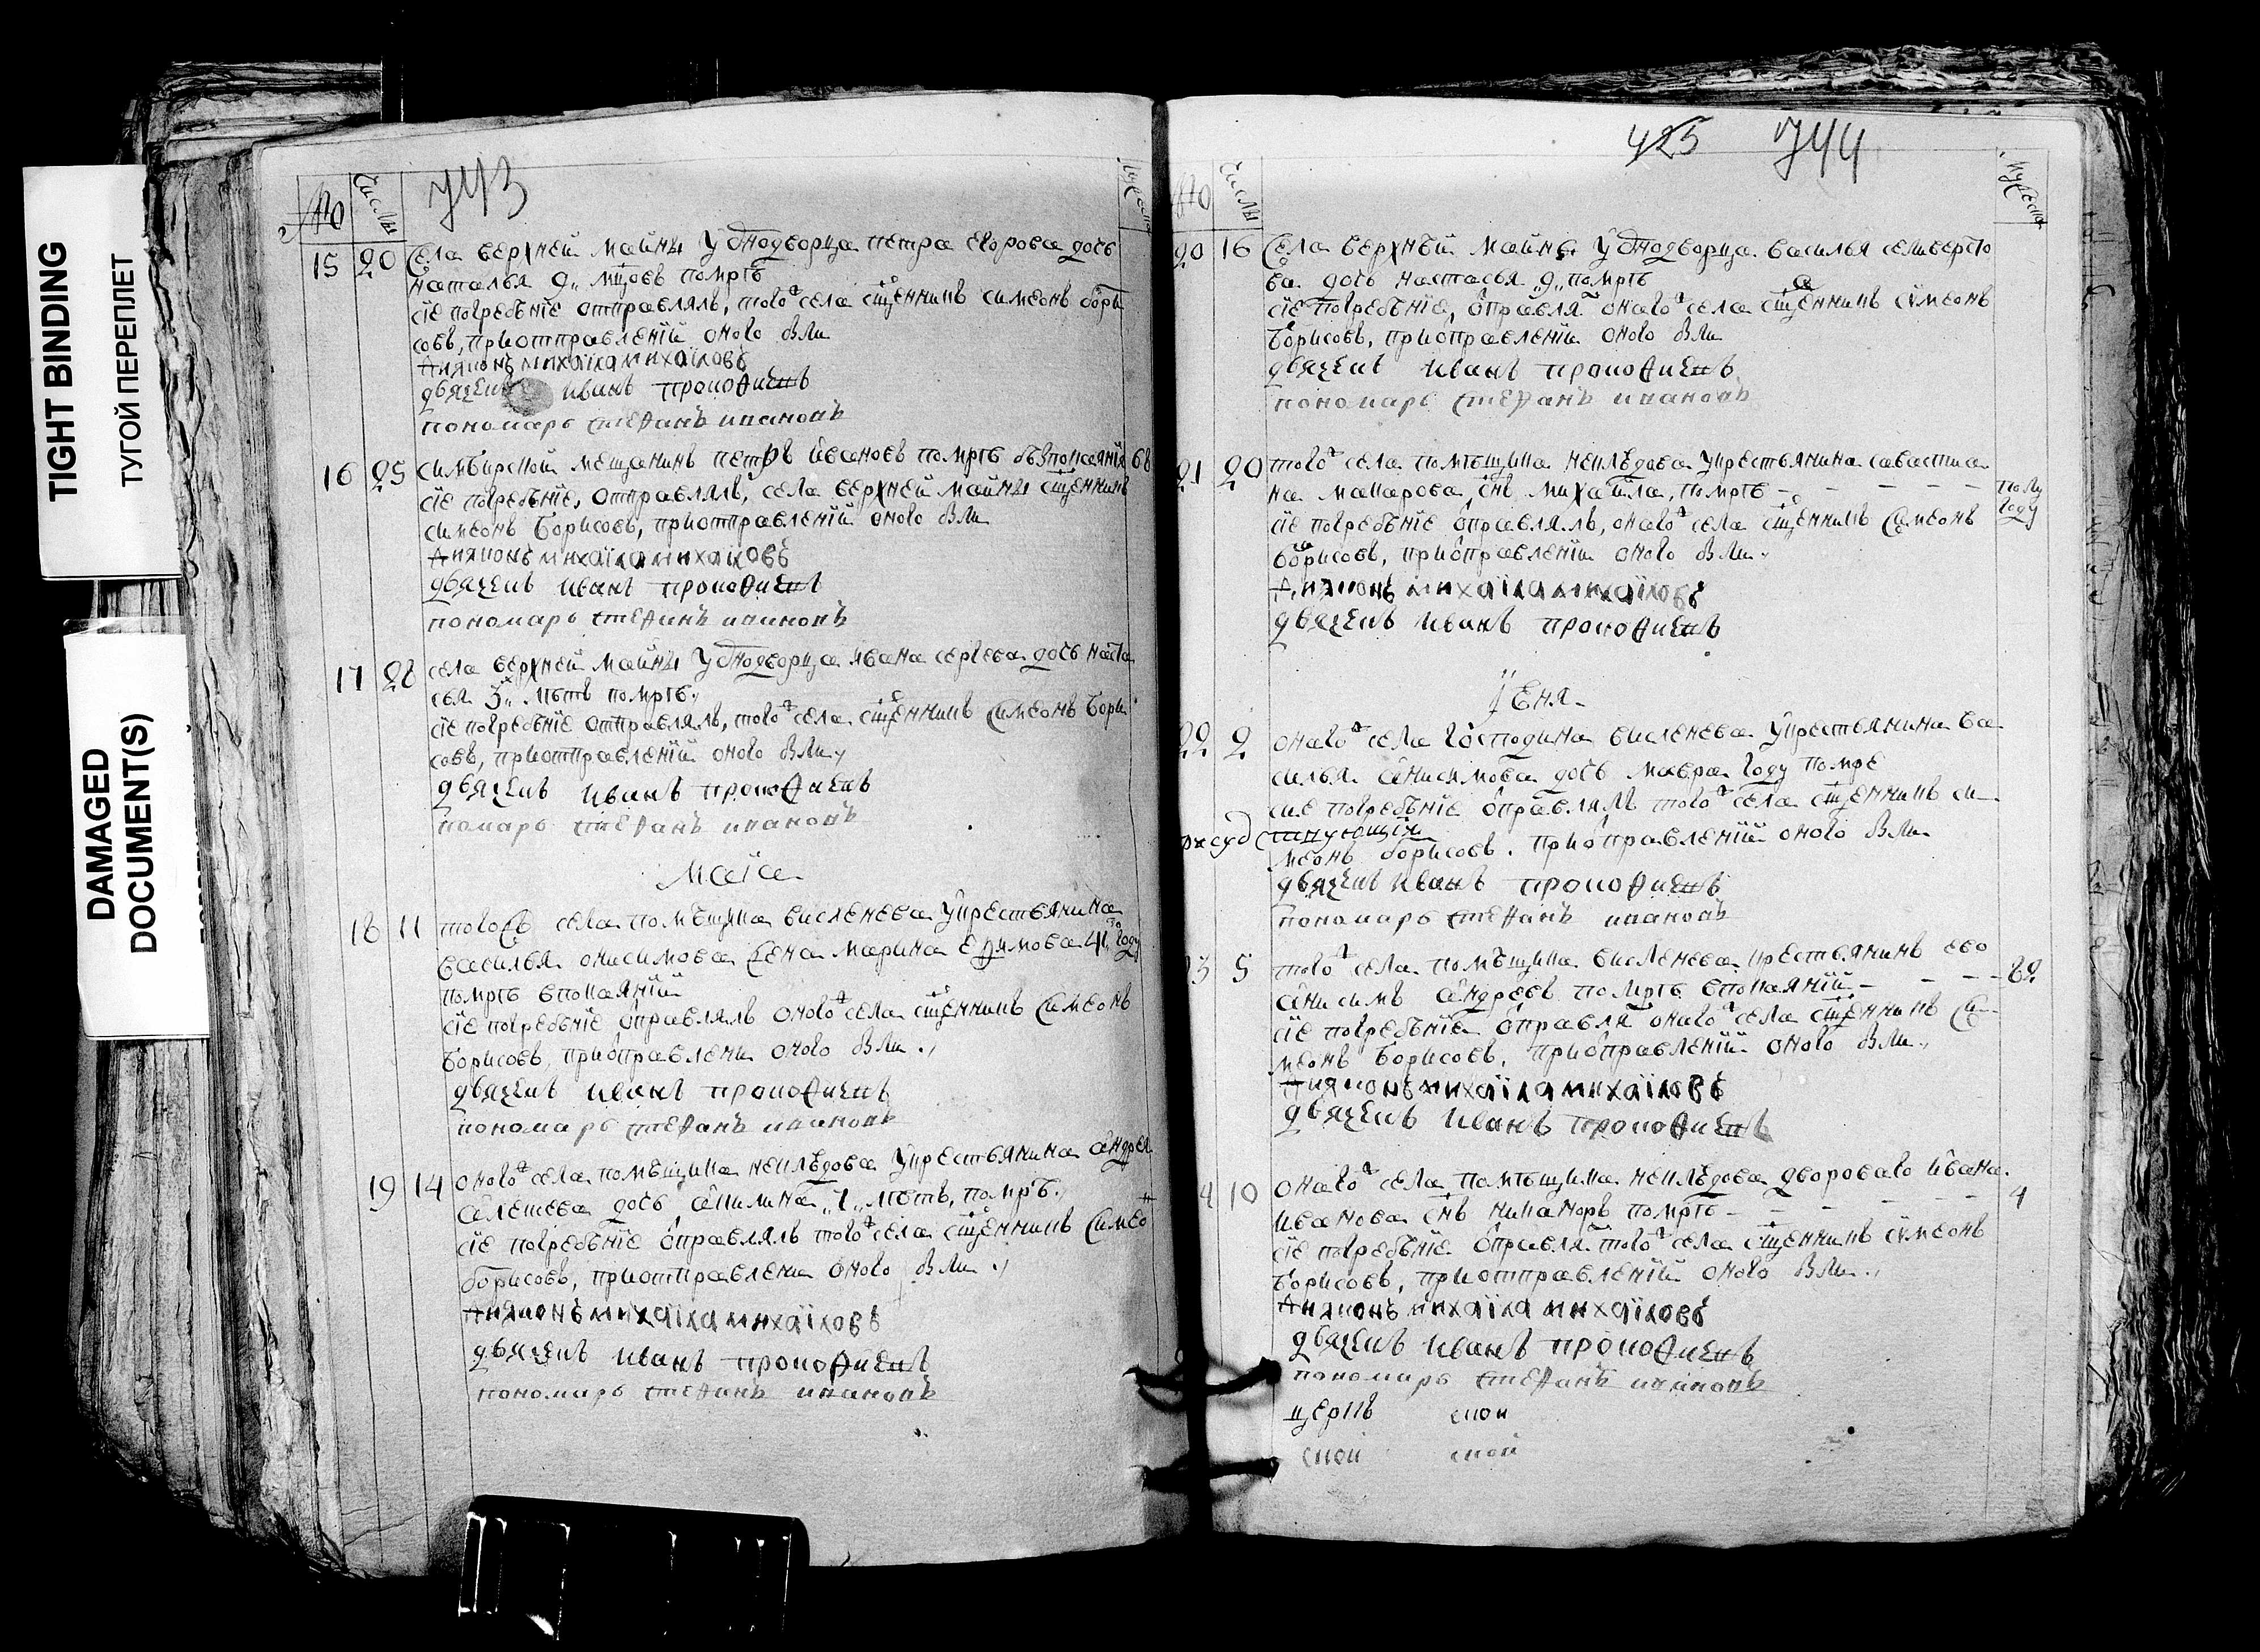 TIGHT BINDING
ТУГОЙ ПЕРЕПЛЕТ
DAMAGED
DOCUMENT(S)
743
№
Числы
15 20 Села верхней майны у однодворца петра егорова дочь
наталья 9 мцовъ померъ
сїе погребънїе отправлялъ, того ж села сщенникъ симеонъ бори
совъ, приотправленїй оного были
Дияконъ михаїла михаїловъ
дьячекъ иванъ прокофиевъ
пономарь стефанъ ивановъ
16 25 симбирской мещанинъ петръ ивановъ померъ 68
сїе погребънїе, отправлялъ, села верхней майны сщенникъ
симеонъ борисовъ, приотправленїй оного были
Дияконъ михаїла михаиловъ
дьячекъ иванъ прокофиевъ
пономарь стефанъ ивановъ
17 28 села верхней майны у однодворца ивана сергева дочь наста
сья 3 лѣтъ помрѣ
сїе погребънїе отправлялъ, того ж села сщенникъ симеонъ бори
совъ, приотправленїй оного были
дьячекъ иванъ прокофиевъ
помарь стефанъ ивановъ
Маїа
18 11 того ж села помѣщика висленева у крестьянина
василья онисимова жена марина ефимова 41 году
помрѣ впокаянїй
сїе погребънїе отправлялъ оного ж села сщенникъ симеонъ
борисовъ, приотправлени оного были
дьячекъ иванъ прокофиевъ
пономарь стефанъ ивановъ
19 14 оного ж села помѣщика неклѣдова у крестьянина андрея
алегшева дочь акилина 1 лѣтъ, помрѣ
сїе погребънїе отправлялъ того ж села сщенникъ симео
борисовъ, приотправлени оного были
Дияконъ михаїла михаїловъ
дьячекъ иванъ прокофиевъ
пономарь стефанъ ивановъ
425 744
Числы
20 16 Села верхнъй майны у однодворца василья селиверсто
ва дочь настасья 9 помрѣ
сїе погребънїе, отправля онаго ж села сщенникъ сумеонъ
борисовъ, приотправленїй оного были
дьячекъ иванъ прокофиевъ
пономарь стефанъ ивановъ
21 20 того ж села помѣщика неклѣдова у крестьянина савастиа
на макарова снъ михайла, помрѣ полу году
сїе погребънїе отправлялъ, онаго ж села сщенникъ симеонъ
борисовъ, приотправленїи оного были
Дияконъ михаїла михаїловъ
дьячекъ иванъ прокофиевъ
Їюня
22 2 онаго ж села господина висленева у крестьянина ва
силья анисимова дочь мавра году помре
сие погребънїе отправлялъ того ж села сщенникъ си
меонъ борисовъ. приотправленїй оного были
дьячекъ иванъ прокофиевъ
пономарь стефанъ ивановъ
23 5 того ж села помѣщика висленева крестьянинъ ево
анисимъ андреевъ помрѣ впокаянїй 82
сїе погребънїе отправля онаго ж села сщенникъ си
меонъ борисовъ, приотправленїй оного были
Дияконъ михаїла михаїловъ
дьячекъ иванъ прокофиевъ
4 10 онаго ж села помѣщика неклѣдова дворового ивана
иванова снъ никаноръ помрѣ 4
сїе погребънїе отправля того ж села сщенникъ сумеонъ
борисовъ, приотправленїй оного были
Дияконъ михаїла михаїловъ
дьячекъ иванъ прокофиевъ
пономарь стефанъ ивановъ